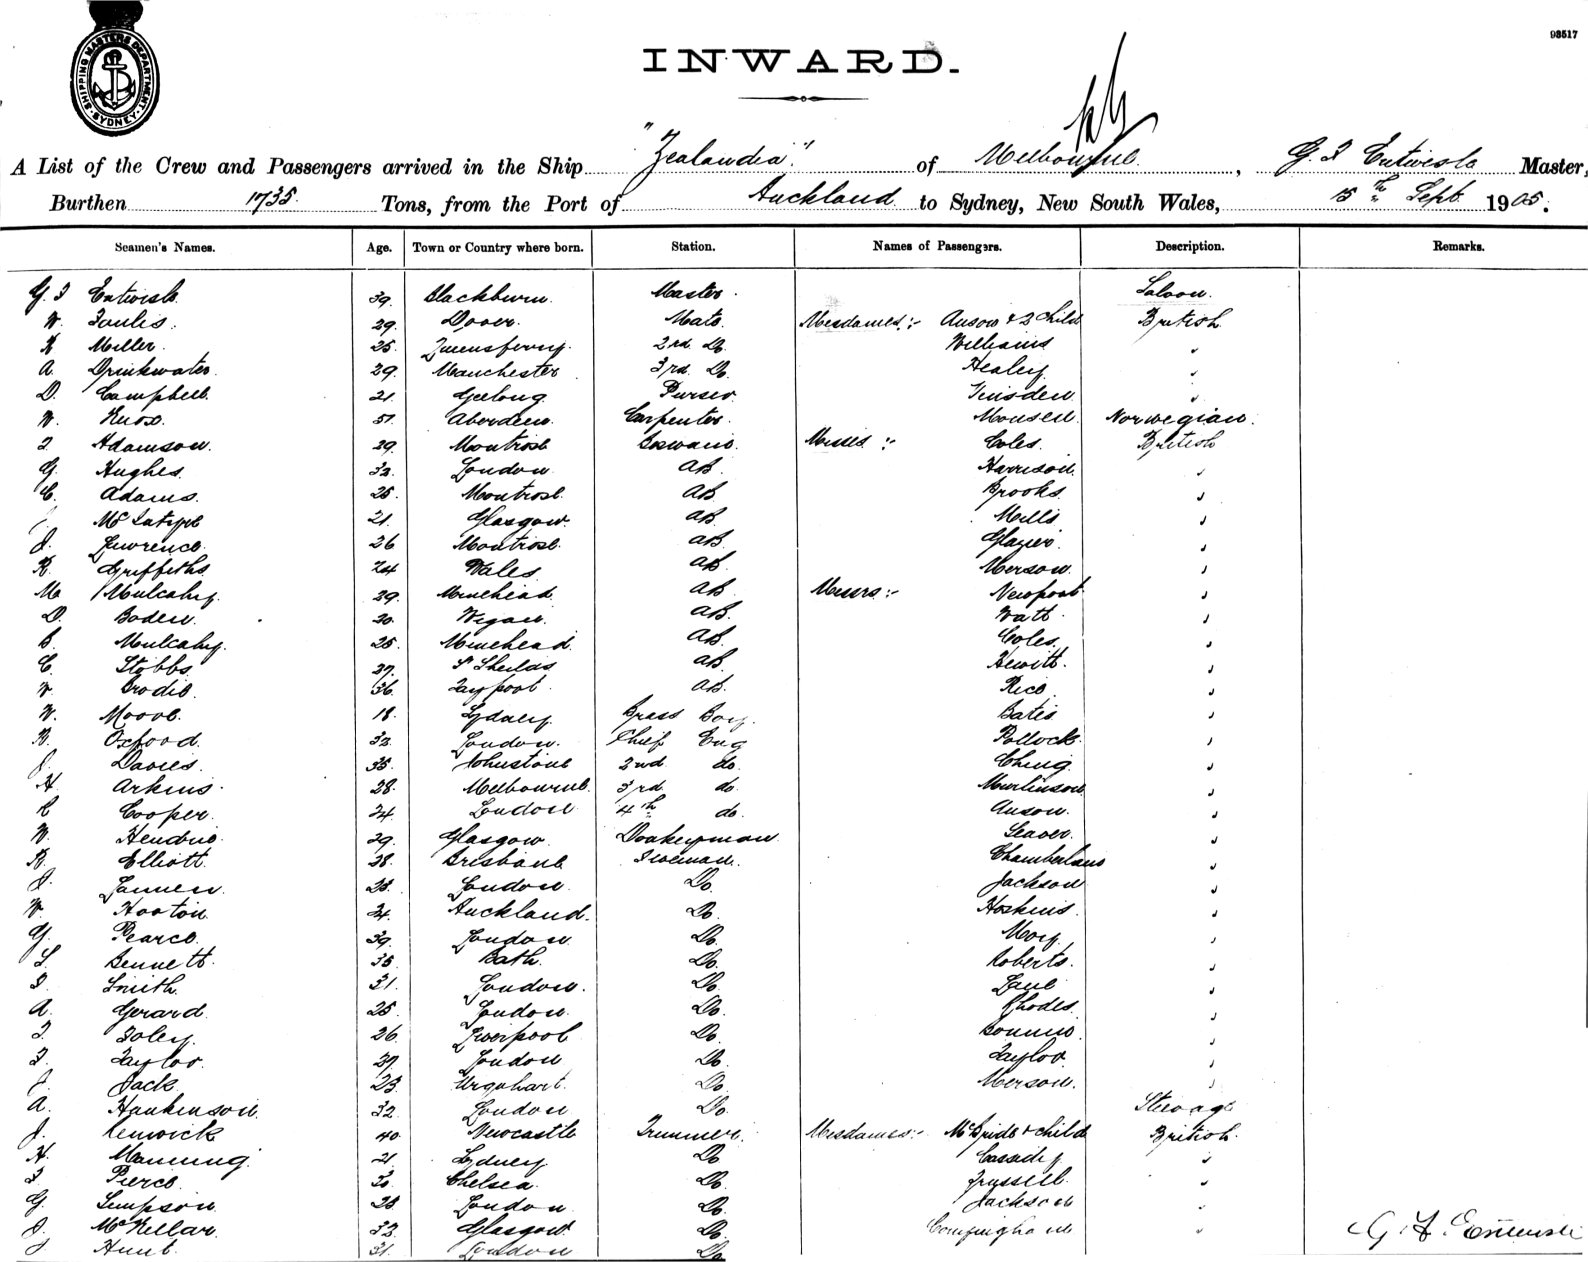 98517
SHIPPING MASTERS DEPARTMENT SYDNEY
INWARD.
A List of the Crew and Passengers arrived in the Ship "Zealandia" of Melbourne, G. F Entwisle Master,
Burthen 1735 Tons, from the Port of Auckland to Sydney, New South Wales, 15th Sept 1905.
Seamen's Names. Age. Town or Country where born. Station. Names of Passengers. Description. Remarks.
G. F Entwisle 39. Blackburn. Master. Saloon.
W. Foulis. 29. Dover. Mate. Mesdames:- Anson & 2 Child British
Miller. 25. Queensferry. 2nd Do. Williams "
A. Drinkwater. 29. Manchester 3rd Do. Healey "
D. Campbell. 21. Geelong Purser "
W. Knox. 51. Aberdeen. Carpenter. Monsen Norwegian.
Adamson. 29. Montrose Misses:- Coles. British
G. Hughes. 32. London AB. Harrison. "
C. Adams. 25. Montrose. AB Brooks. "
McIntyre 21. Glasgow. AB. Mills. "
J. Lawrence. 26 Montrose. AB. Glazier. "
R. Griffiths 24 Wales. AB. Merson. "
M Mulcahy. 29. Minehead. AB Messrs:- Newport "
D. Boden. 30. Wigan. AB. Watt. "
Mulcahy. 25. Minehead. AB. Coles. "
C. Stobbs. 27. S Sheilds AB Hewitt. "
W. Brodie. 36. Tayport. AB. Rice. "
W. Moore. 18. Sydney. Brass Boy. Bates "
R. Oxford. 32. London. Chief Eng Pollock. "
J. Davies. 35. Johnstone 2nd do. Ching. "
H. Arkins. 28. Melbourne. 3rd do. "
Cooper. 24. London 4th do. Anson. "
W. Hendrie. 29. Glasgow. Donkeyman Seaver. "
R. Elliott. 28. Brisbane Fireman. Chamberlains "
J. 25. London. Do. Jackson "
W. Hooton. 24. Auckland. Do. Hoskins. "
G. Pearce. 39. London. Do. "
Bennett. 35. Bath. Do. Roberts. "
Smith. 31. London. Do. Lane "
A. Gerard. 25. London. Do. Rhodes. "
Foley. 26. Liverpool Do. "
Taylor. 27. London Do. Taylor "
J. Jack. 23. Urquhart. Do. Merson. "
A. Hankinson. 32. London Do. Steerage
J. Renwick 40. Newcastle Trimmer. Mesdames:- McBride & child British.
H. Manning. 21. Sydney Do Cassidy "
Pierce. 30. Chelsea. Do. Trussell. "
G. Simpson. 28. London Do. Jackson "
J. McKellar. 32. Glasgow Do. Conyingham "
J Hunt. 31. London Do
G. F. Entwisle